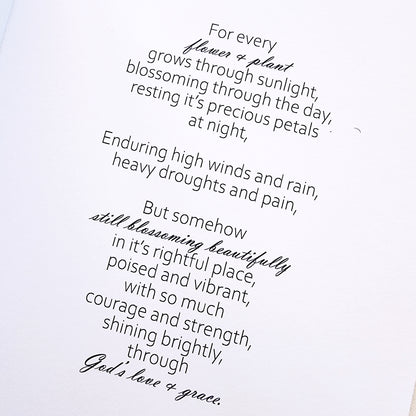 For every
flower & plant
grows through sunlight,
blossoming through the day,
resting it's precious petals
at night,
Enduring high winds and rain,
heavy droughts and pain,
But somehow
still blossoming beautifully
in it's rightful place,
poised and vibrant,
with so much
courage and strength,
shining brightly,
through
God's love & grace.